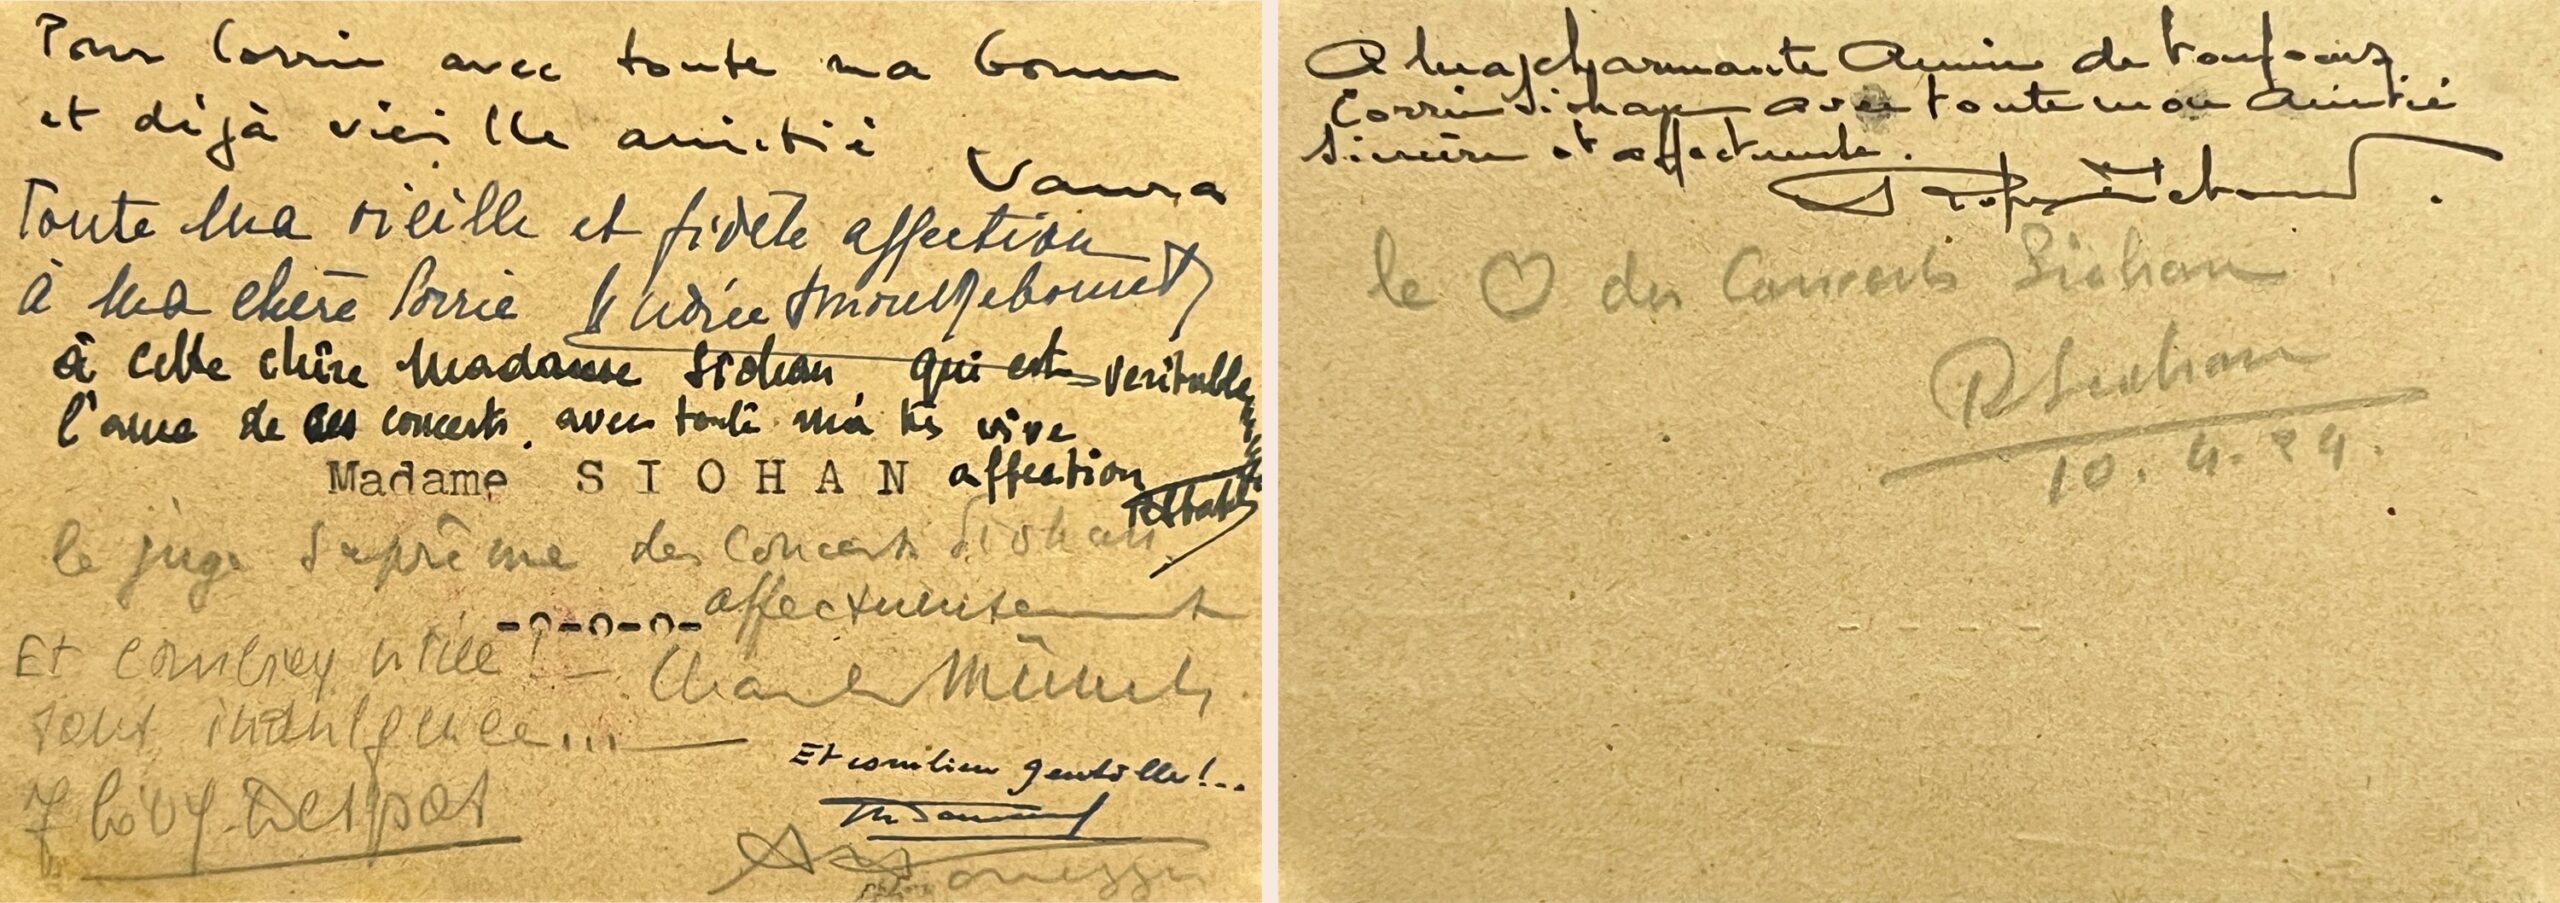 Pour Corrie avec toute ma bonne
et déjà vieille amitié
Vaura
Toute ma vieille et fidèle affection
à ma chère Corrie
à cette chère Madame Siohan, qui est veritable
l'ame de ces concerts, avec toute ma très vive
affection
Madame SIOHAN
le juge suprême des Concerts Siohan
affectueusement
-o-o-o-
Charles Münch
Et combien utile! –
tout indulgence...
Et combien gentille!...
A Honegger
A ma charmante Amie de toujours
Corrie Siohan avec toute mon amitié
sincère et affectueuse.
le ♡ des Concerts Siohan
R Siohan